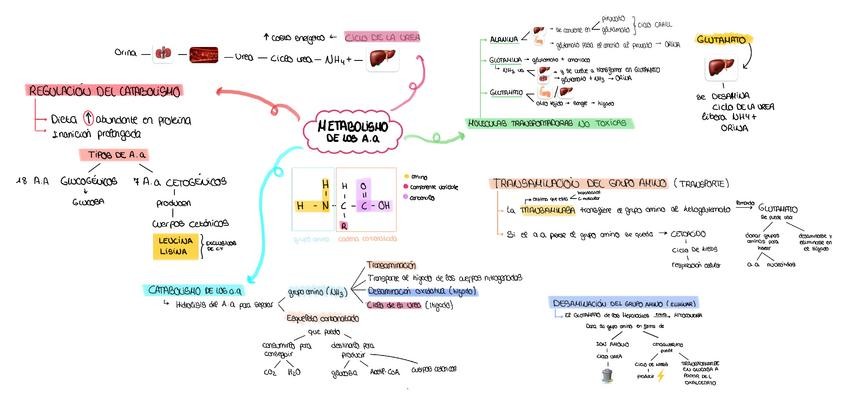 ↑ COSTO ENERGÉTICO ← CICLO DE LA UREA
Orina — — — Urea — Ciclo urea — NH4+ —
REGULACIÓN DEL CATABOLISMO
Dieta ↑ abundante en proteina
Inanición prolongada
TIPOS DE A.a
18 A.A GLUCOGÉNICOS
GLUCOSA
7 A.a CETOGÉNICOS
producen
cuerpos cetónicos
LEUCINA
LISINA
EXCLUSIVOS
METABOLISMO
DE LOS A.A
amino
componente variable
carboxilo
H - N - C - C - OH
H H O
R
grupo amino
cadena carbonatada
ALANINA → se convierte en
piruvato
glutamato
CICLO CAHILL
glutamato pasa el amonio al piruvato → ORINA
GLUTAMINA → glutamato + amoniaco
NH3 va
y se vuelve a transformar en GLUTAMATO
glutamato + NH3 → ORINA
GLUTAMATO
MOLÉCULAS TRANSPORTADORAS NO TÓXICAS
GLUTAMATO
SE DESAMINA
CICLO DE LA UREA
libera NH4+
ORINA
TRANSAMINACIÓN DEL GRUPO AMINO (TRANSPORTE)
La TRANSAMINASA transfiere el grupo amino al
GLUTAMATO
se puede usar
donar grupos
aminos para
hacer
a.a nucleótidos
desaminarse y
eliminarse en
el hígado
Si el a.a pierde el grupo amino se queda → CETOÁCIDO
CICLO DE KREBS
respiración celular
CATABOLISMO DE LOS a.a
Hidrólisis del A.a para separar
grupo amino (NH3)
Transaminación
Transporte al hígado de los cuerpos nitrogenados
Desaminación oxidativa (hígado)
Ciclo de la urea (hígado)
Esqueleto carbonatado
que puede
consumirlo para
conseguir
CO2 H2O
destinarlo para
producir
glucosa Acetil-CoA cuerpos cetónicos
DESAMINACIÓN DEL GRUPO AMINO (ELIMINAR)
El GLUTAMATO de los hepatocitos
Dona su grupo amino en forma de
ION AMONIO
CICLO UREA
CICLO DE KREBS
producir
TRANSFORMARSE
EN GLUCOSA A
PARTIR DEL
OXALACETATO